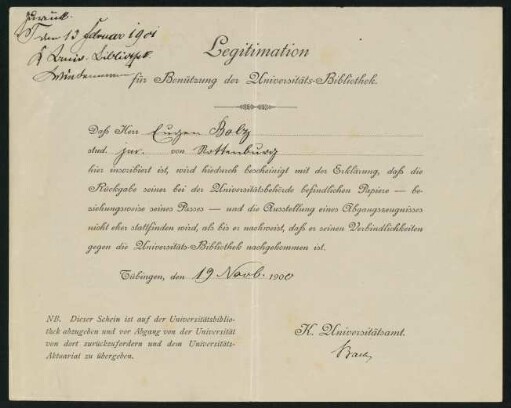 zurück.
T den 13 Februar 1901
K. Univ. Bibliothek
Legitimation
für Benützung der Universitäts-Bibliothek.
Daß Herr Eugen Bolz
stud. jur. von Rottenburg
hier inscribiert ist, wird hiedurch bescheinigt mit der Erklärung, daß die
Rückgabe seiner bei der Universitätsbehörde befindlichen Papiere — be-
ziehungsweise seines Passes — und die Ausstellung eines Abgangszeugnisses
nicht eher stattfinden wird, als bis er nachweist, daß er seinen Verbindlichkeiten
gegen die Universitäts-Bibliothek nachgekommen ist.
Tübingen, den 19 Novb. 1900
NB. Dieser Schein ist auf der Universitätsbiblio-
thek abzugeben und vor Abgang von der Universität
von dort zurückzufordern und dem Universitäts-
Aktuariat zu übergeben.
K. Universitätsamt.